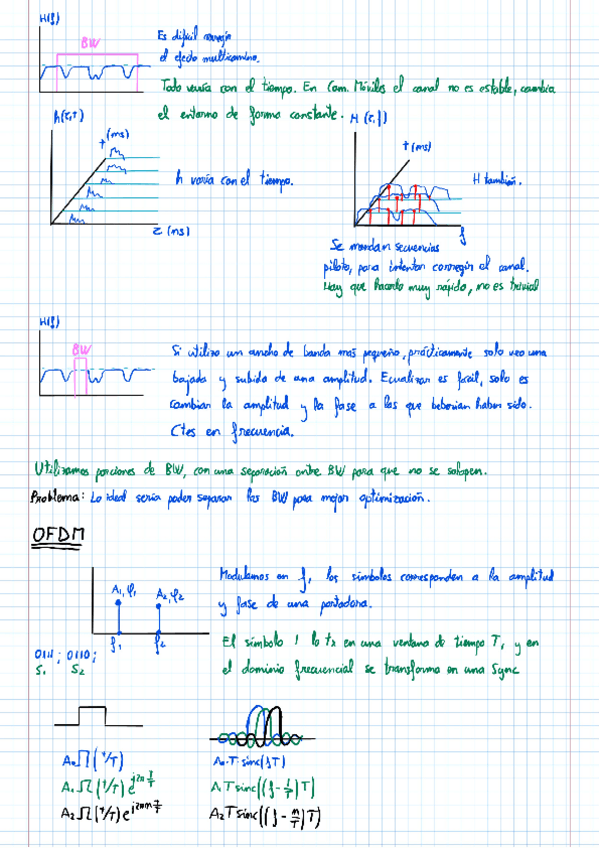 H(f)
BW
Es difícil corregir
el efecto multicamino.
Todo varía con el tiempo. En Com. Móviles el canal no es estable, cambia
el entorno de forma constante.
h(τ,t)
t (ms)
τ (ms)
h varía con el tiempo.
H (t,f)
t (ms)
f
H también.
Se mandan secuencias
piloto, para intentar corregir el canal.
Hay que hacerlo muy rápido, no es trivial
H(f)
BW
Si utilizo un ancho de banda más pequeño, prácticamente solo veo una
bajada y subida de una amplitud. Ecualizar es fácil, solo es
cambiar la amplitud y la fase a las que deberían haber sido.
Ctes en frecuencia.
Utilizamos porciones de BW, con una separación entre BW para que no se solapen.
Problema: Lo ideal sería poder separar los BW para mejor optimización.
OFDM
A₁, φ₁
A₂, φ₂
f₁
f₂
0111 ; 0110 ;
S₁ S₂
Modulamos en f, los símbolos corresponden a la amplitud
y fase de una portadora.
El símbolo 1 lo tx en una ventana de tiempo T, y en
el dominio frecuencial se transforma en una Sync
A₀Π(t/T)
A₁Π(t/T) e^(j2π t/T)
A₂Π(t/T) e^(j2πm t/T)
A₀·T·sinc(fT)
A₁T sinc((f - 1/T)T)
A₂T sinc((f - m/T)T)